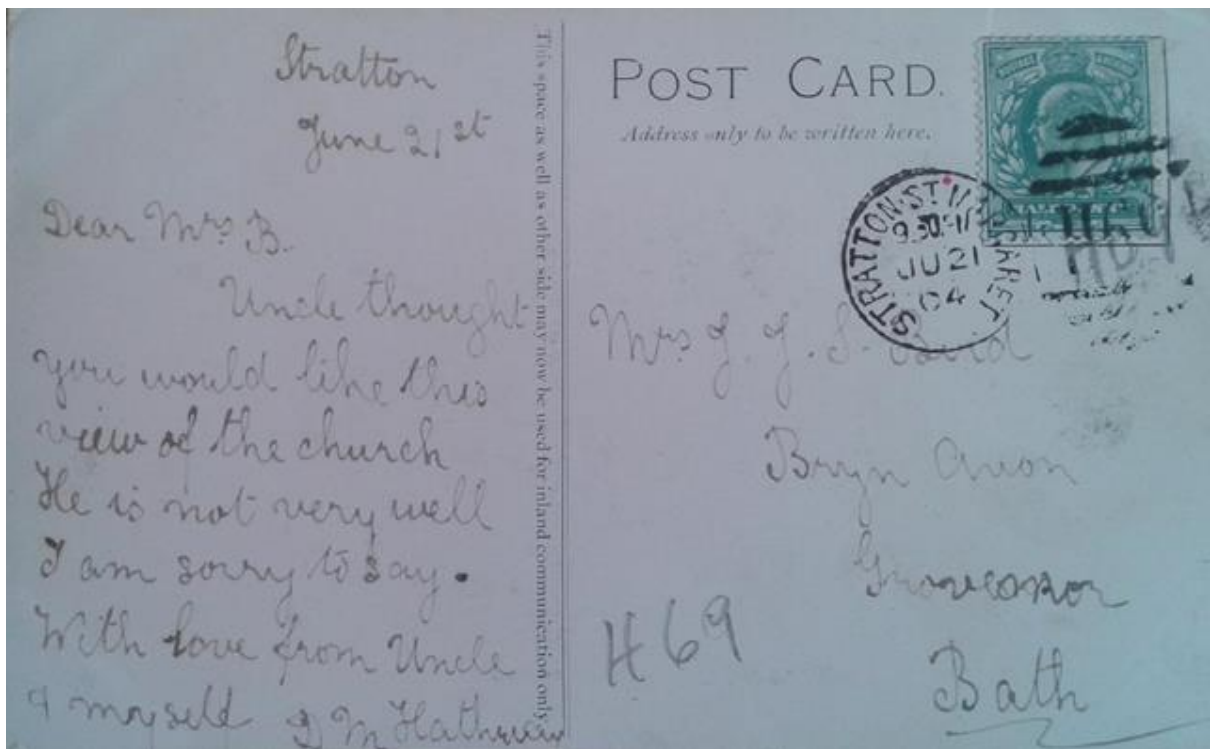 Stratton
June 21st
Dear Mrs B.
Uncle thought
you would like this
view of the church
He is not very well
I am sorry to say.
With love from Uncle
& myself D M
This space as well as other side may now be used for inland communication only.
POST CARD.
Address only to be written here.
STRATTON·ST MARGARET
9.30
JU 21
04
Mrs J. J. S.
Bryn Avon
Grovesnor
Bath
H69